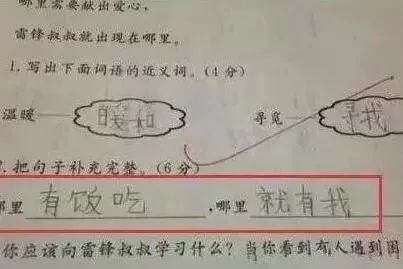 哪里需要献出爱心,
雷锋叔叔就出现在哪里。
1. 写出下面词语的近义词。(4分)
温暖 暖和 寻觅 寻找
.把句子补充完整。(6分)
那里 有饭吃 ,哪里 就有我
你应该向雷锋叔叔学习什么?当你看到有人遇到困